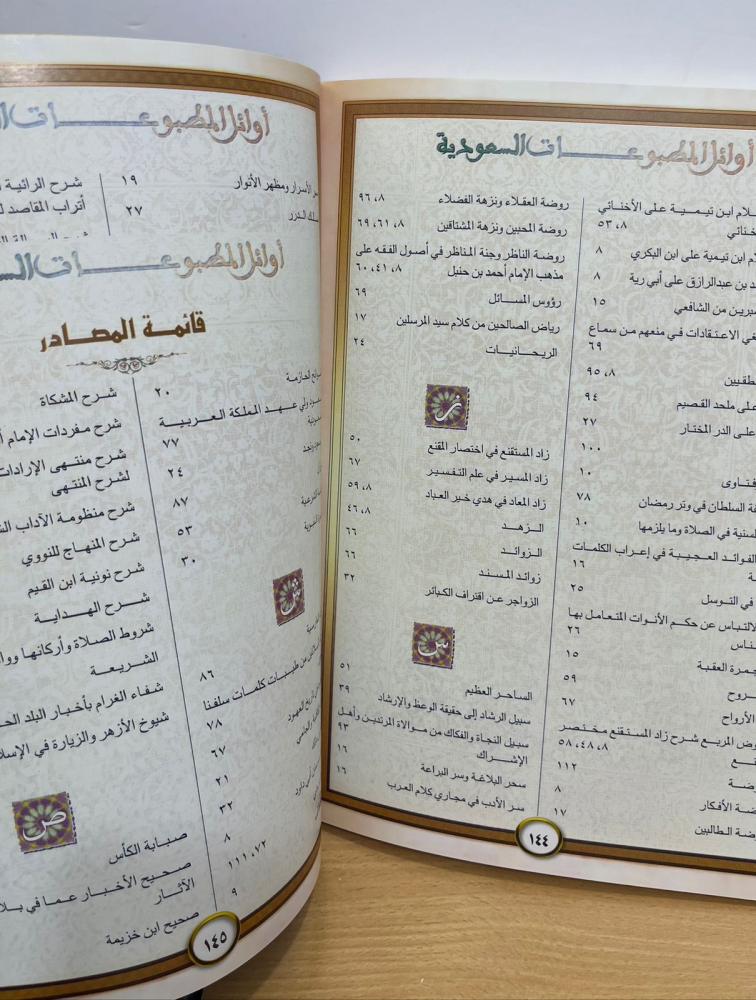 أوائل المطبوعات السعودية
لام ابن تيمية على الأخنائي
خنائي ٥٣،٨
م ابن تيمية على ابن البكري ٨
د بن عبدالرازق على أبي رية ٨
سبرين من الشافعي ١٥
في الاعتقادات في منعهم من سماع
٦٩
طقيين ٩٥،٨
على ملحد القصيم ٩٤
على الدر المختار ٢٧
١٠٠
فتاوى ١٠
ة السلطان في وتر رمضان ٧٨
لسنية في الصلاة وما يلزمها ١٠
الفوائد العجيبة في إعراب الكلمات
١٦
في التوسل ٢٥
الالتباس عن حكم الأنوات المتعامل بها
ناس ٢٦
جمرة العقبة ١٥
روح ٥٩
الأرواح ٦٧
وض المربع شرح زاد المستقنع مختصر
نع ٥٨،٤٨،٨
ضة ١١٢
ضة الأفكار ٨
وضة الطالبين ١٧
روضة العقلاء ونزهة الفضلاء ٩٦،٨
روضة المحبين ونزهة المشتاقين ٦٩،٦١،٨
روضة الناظر وجنة المناظر في أصول الفقه على
مذهب الإمام أحمد بن حنبل ٦٠،٤١،٨
رؤوس المسائل ٦٩
رياض الصالحين من كلام سيد المرسلين ١٧
الريحانيات ٢٤
ز
زاد المستقنع في اختصار المقنع ٥٠
زاد المسير في علم التفسير ٦٧
زاد المعاد في هدي خير العباد ٥٩،٨
الزهد ٤٦،٨
الزوائد ٦٦
زوائد المسند ٦٦
الزواجر عن اقتراف الكبائر ٣٢
س
الساحر العظيم ٥١
سبيل الرشاد إلى حقيقة الوعظ والإرشاد ٣٩
سبيل النجاة والفكاك من موالاة المرتدين وأهل
الإشراك ٩٣
سحر البلاغة وسر البراعة ١٦
سر الأدب في مجاري كلام العرب ١٦
١٤٤
أوائل المطبوعات
سر الأسرار ومظهر الأنوار ١٩
سلك الدرر ٢٧
شرح الرائية
أتراب المقاصد
أوائل المطبوعات الس
قائمة المصادر
٢٠
سعود ولي عهد المملكة العربية
٧٧
٢٤
٨٧
٥٣
٣٠
ش
٨٦
من طيبات كلمات سلفنا
٧٨
٦٧
٢١
٣٢
٨
١١١،٧٢
٩
شرح المشكاة
شرح مفردات الإمام أ
شرح منتهى الإرادات
لشرح المنتهى
شرح منظومة الآداب الش
شرح المنهاج للنووي
شرح نونية ابن القيم
شرح الهداية
شروط الصلاة وأركانها ووا
الشريعة
شفاء الغرام بأخبار البلد الح
شيوخ الأزهر والزيارة في الإسلا
ص
صبابة الكأس
صحيح الأخبار عما في بلا
الآثار
صحيح ابن خزيمة
١٤٥